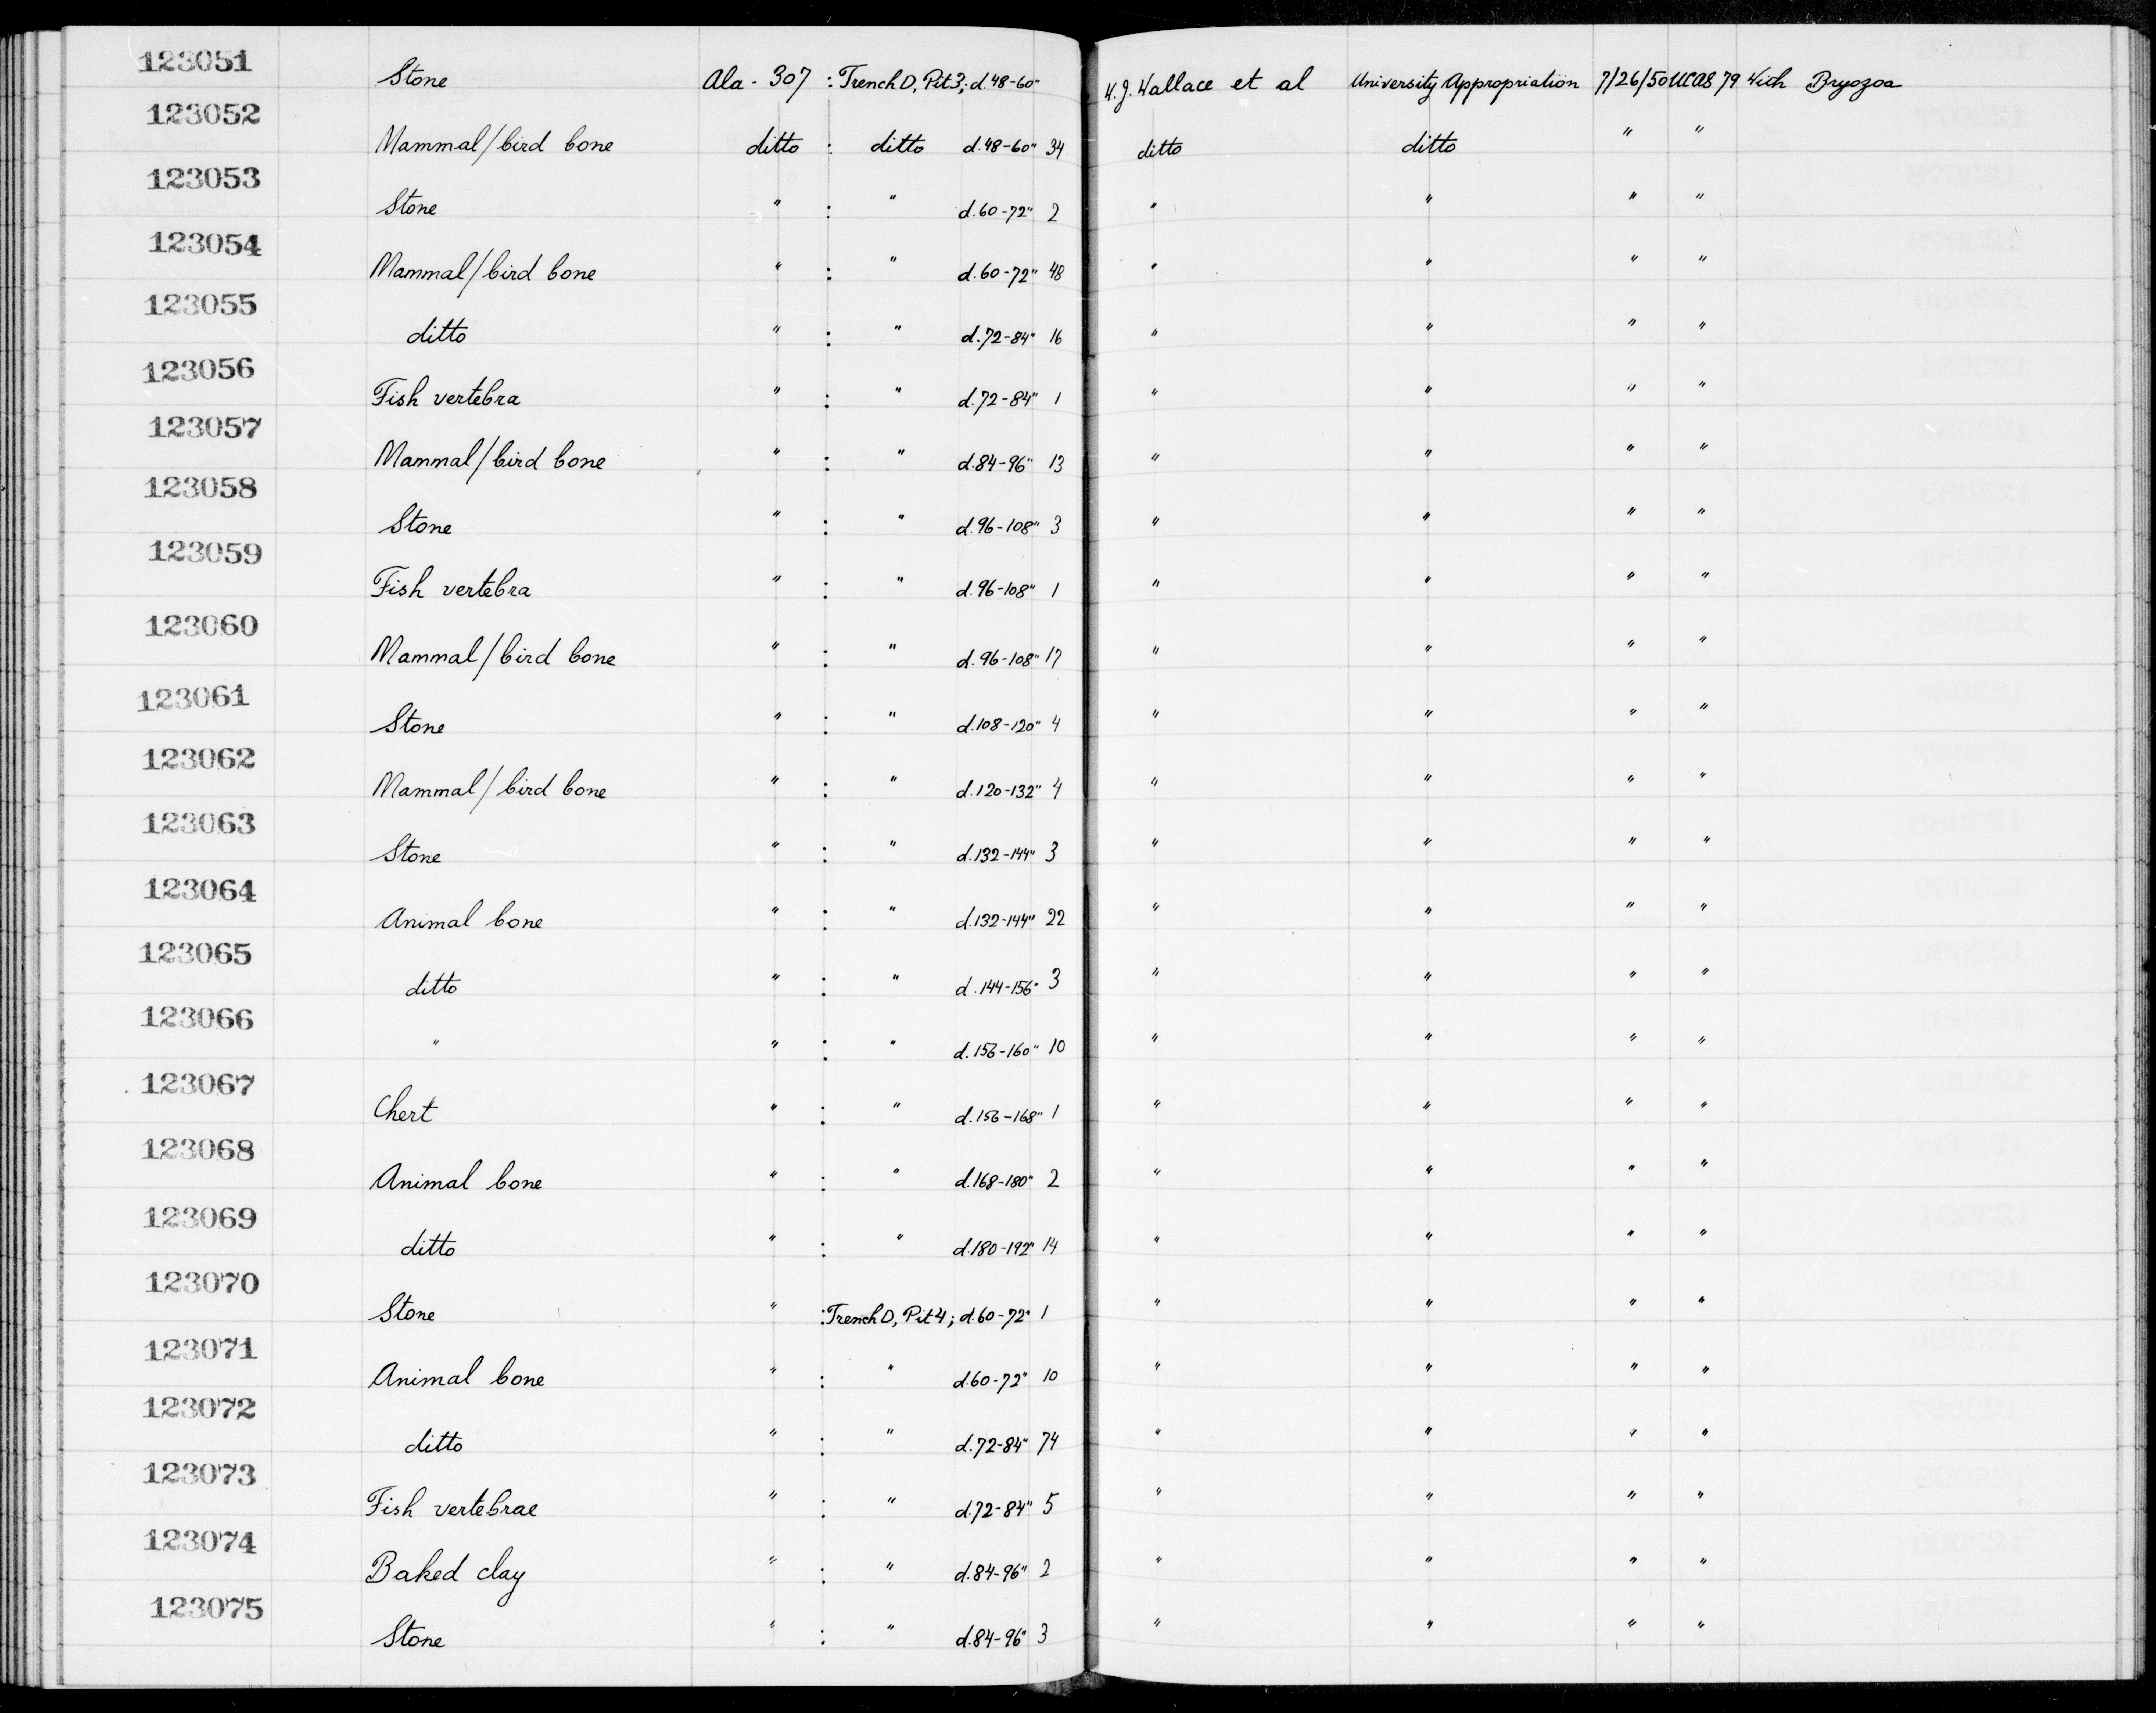 123051 Stone Ala - 307 : Trench D, Pit 3; d. 48-60" W.J. Wallace et al University Appropriation 7/26/50 UCAS 79 With Bryozoa
123052 Mammal/bird bone ditto : ditto d. 48-60" 34 ditto ditto " "
123053 Stone " : " d. 60-72" 2 " " " "
123054 Mammal/bird bone " : " d. 60-72" 48 " " " "
123055 ditto " : " d. 72-84" 16 " " " "
123056 Fish vertebra " : " d. 72-84" 1 " " " "
123057 Mammal/bird bone " : " d. 84-96" 13 " " " "
123058 Stone " : " d. 96-108" 3 " " " "
123059 Fish vertebra " : " d. 96-108" 1 " " " "
123060 Mammal/bird bone " : " d. 96-108" 17 " " " "
123061 Stone " : " d. 108-120" 4 " " " "
123062 Mammal/bird bone " : " d. 120-132" 4 " " " "
123063 Stone " : " d. 132-144" 3 " " " "
123064 Animal bone " : " d. 132-144" 22 " " " "
123065 ditto " : " d. 144-156" 3 " " " "
123066 " " : " d. 156-160" 10 " " " "
123067 Chert " : " d. 156-168" 1 " " " "
123068 Animal bone " : " d. 168-180" 2 " " " "
123069 ditto " : " d. 180-192" 14 " " " "
123070 Stone " : Trench D, Pit 4; d. 60-72" 1 " " " "
123071 Animal bone " : " d. 60-72" 10 " " " "
123072 ditto " : " d. 72-84" 74 " " " "
123073 Fish vertebrae " : " d. 72-84" 5 " " " "
123074 Baked clay " : " d. 84-96" 2 " " " "
123075 Stone " : " d. 84-96" 3 " " " "